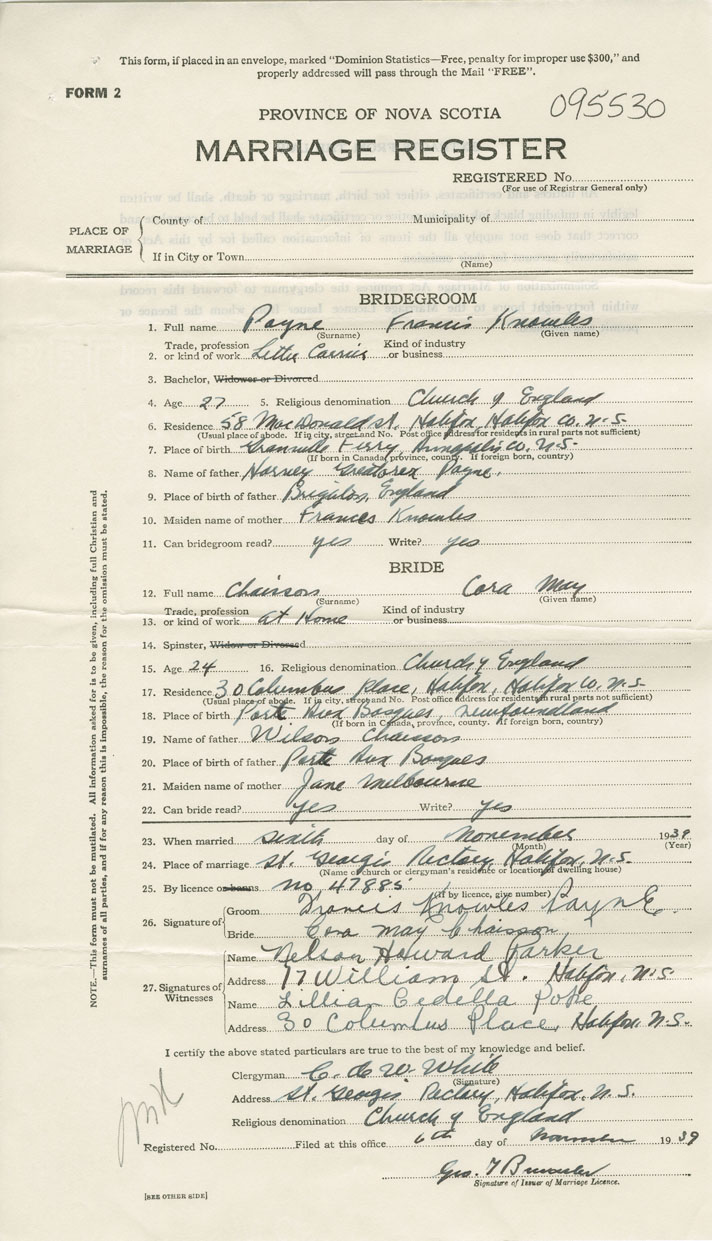 This form, if placed in an envelope, marked "Dominion Statistics—Free, penalty for improper use $300," and
properly addressed will pass through the Mail "FREE".
FORM 2
095530
PROVINCE OF NOVA SCOTIA
MARRIAGE REGISTER
REGISTERED No.
(For use of Registrar General only)
PLACE OF MARRIAGE
County of Municipality of
If in City or Town
(Name)
BRIDEGROOM
1. Full name Payne Francis Knowles
(Surname) (Given name)
2. Trade, profession or kind of work Letter Carrier Kind of industry or business
3. Bachelor, Widower or Divorced
4. Age 27 5. Religious denomination Church of England
6. Residence 58 MacDonald st. Halifax, Halifax Co. N.S.
(Usual place of abode. If in city, street and No. Post office address for residents in rural parts not sufficient)
7. Place of birth Granville Ferry, Annapolis Co. N.S.
(If born in Canada, province, county. If foreign born, country)
8. Name of father Harvey Greatorex Payne.
9. Place of birth of father England
10. Maiden name of mother Frances Knowles
11. Can bridegroom read? yes Write? yes
BRIDE
12. Full name Chaisson Cora May
(Surname) (Given name)
13. Trade, profession or kind of work at Home Kind of industry or business
14. Spinster, Widow or Divorced
15. Age 24 16. Religious denomination Church of England
17. Residence 30 Columbus Place, Halifax, Halifax Co. N.S.
(Usual place of abode. If in city, street and No. Post office address for residents in rural parts not sufficient)
18. Place of birth Porte Aux Basques, Newfoundland
(If born in Canada, province, county. If foreign born, country)
19. Name of father Wilson Chaisson
20. Place of birth of father Porte Aux Basques
21. Maiden name of mother Jane Melbourne
22. Can bride read? yes Write? yes
23. When married sixth day of November 1939
(Month) (Year)
24. Place of marriage St. George's Rectory, Halifax, N.S.
(Name of church or clergyman's residence or location of dwelling house)
25. By licence or banns no. 47885
(If by licence, give number)
26. Signature of
Groom Francis Knowles Payne.
Bride Cora May Chaisson
27. Signatures of Witnesses
Name Nelson Howard Parker
Address 17 William St. Halifax, N.S.
Name Lillian Cedella Poke
Address 30 Columbus Place, Halifax, N.S.
I certify the above stated particulars are true to the best of my knowledge and belief.
Clergyman C. de W. White
(Signature)
Address St. George's Rectory, Halifax, N.S.
Religious denomination Church of England
Registered No. Filed at this office 6th day of November 1939
Geo. T
Signature of Issuer of Marriage Licence.
[SEE OTHER SIDE]
NOTE.—This form must not be mutilated. All information asked for is to be given, including full Christian and
surnames of all parties, and if for any reason this is impossible, the reason for the omission must be stated.